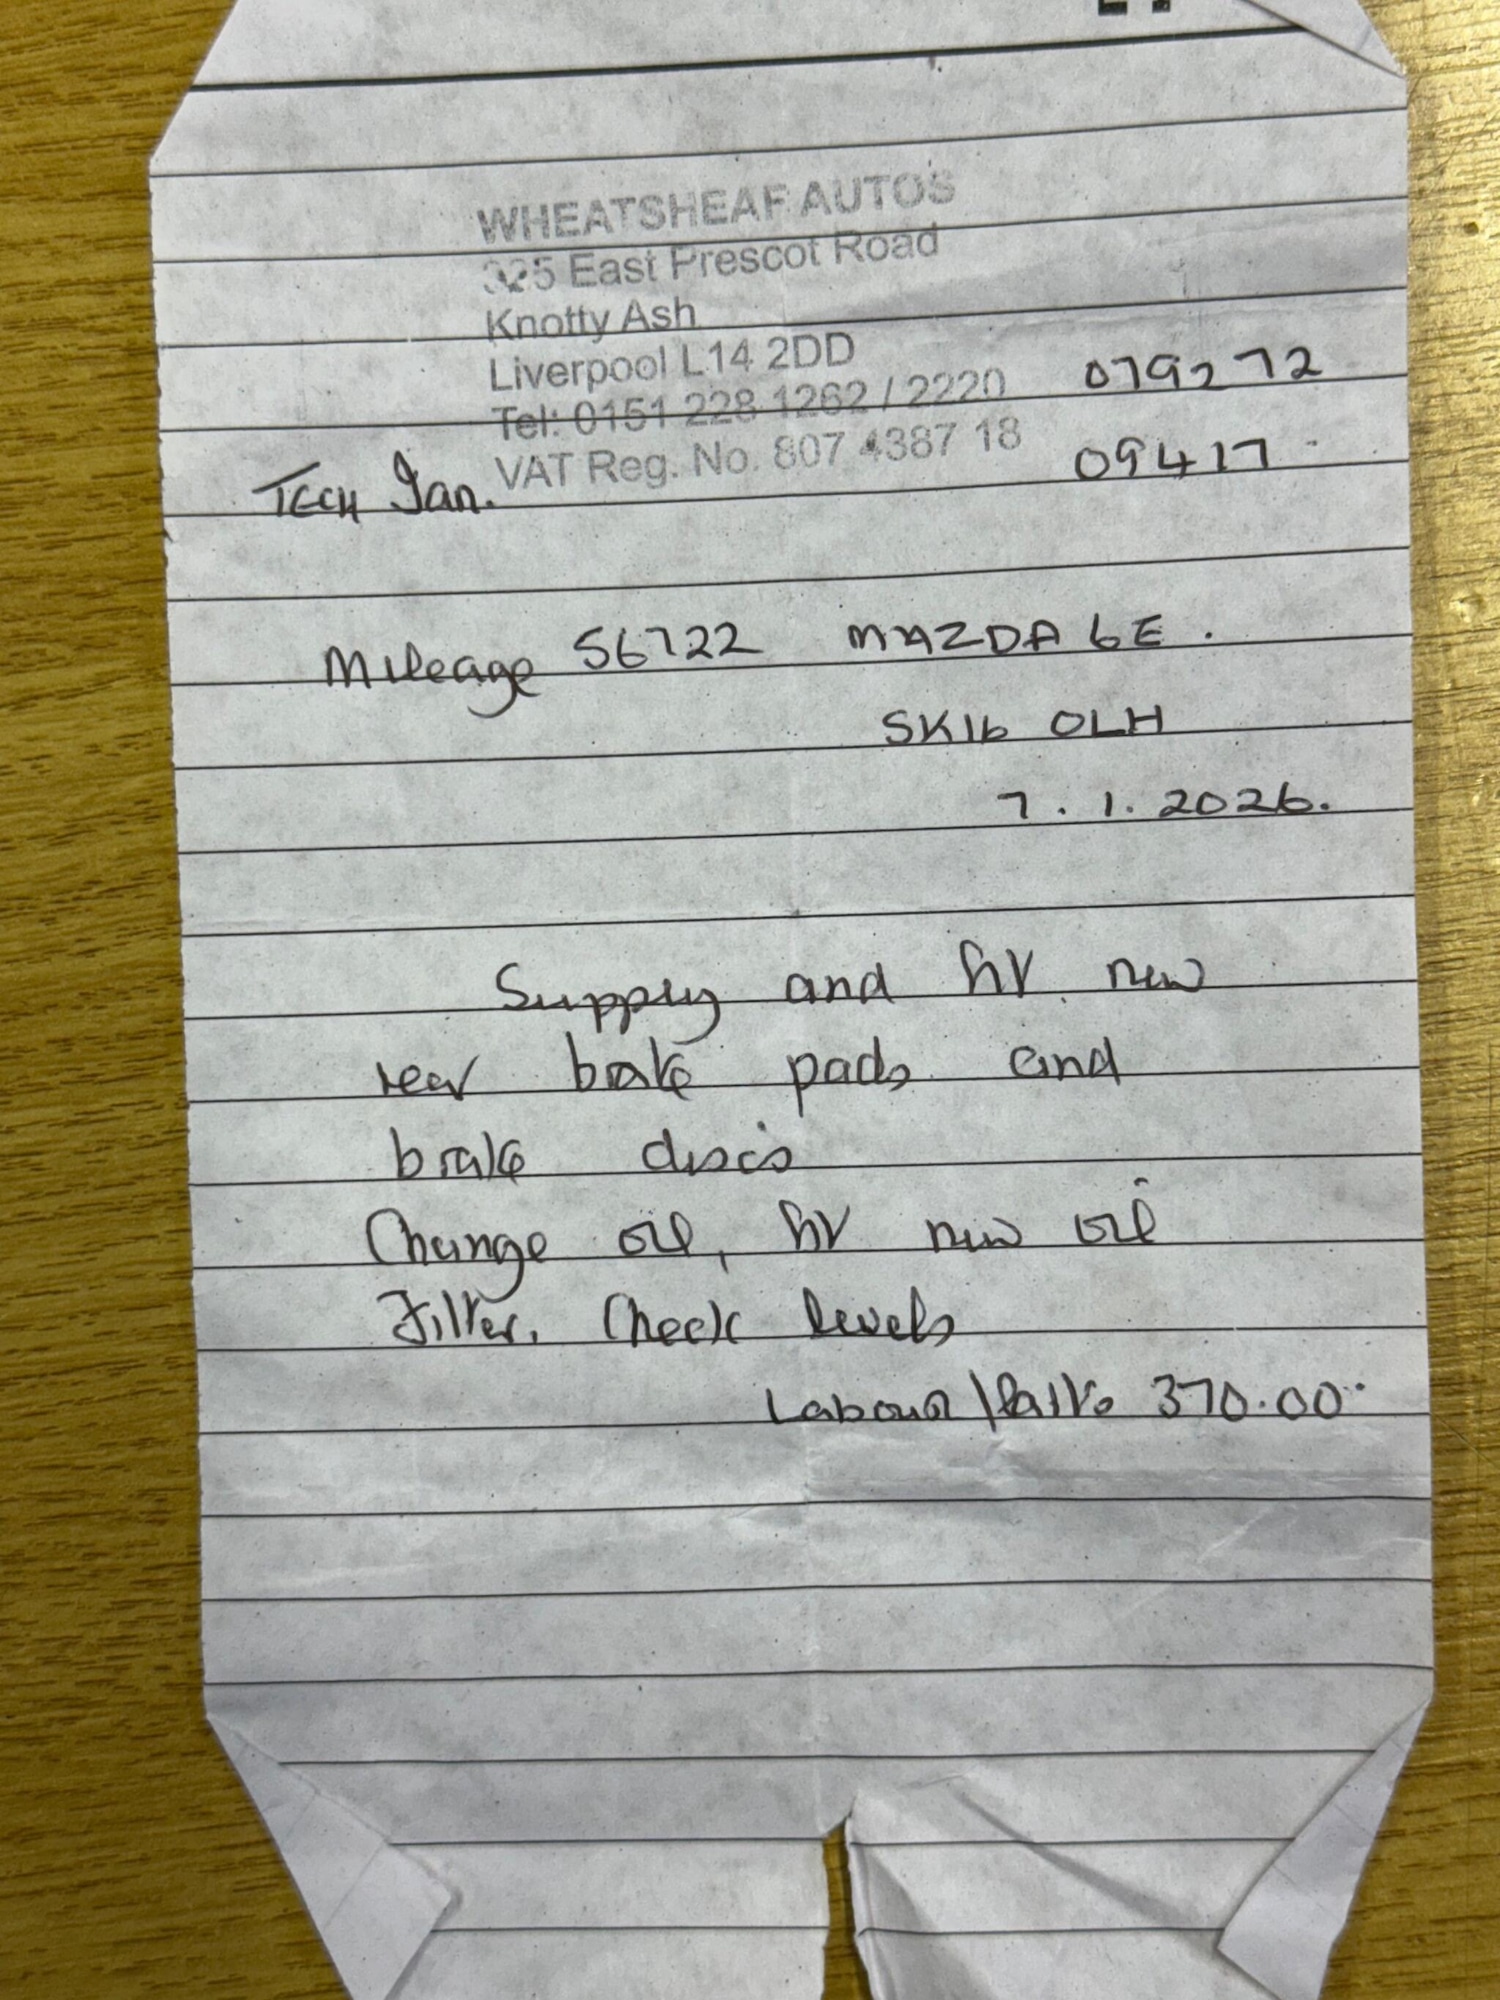 WHEATSHEAF AUTOS
325 East Prescot Road
Knotty Ash
Liverpool L14 2DD
Tel: 0151 228 1262 / 2220
VAT Reg. No. 807 4387 18
0792 72
09417
TECH Ian.
Mileage 56722 MAZDA 6E.
SK16 OLH
7.1.2026.
Supply and fit new
rear brake pads and
brake discs
Change oil, fit new oil
Filter. Check levels
Labour / Parts 370.00